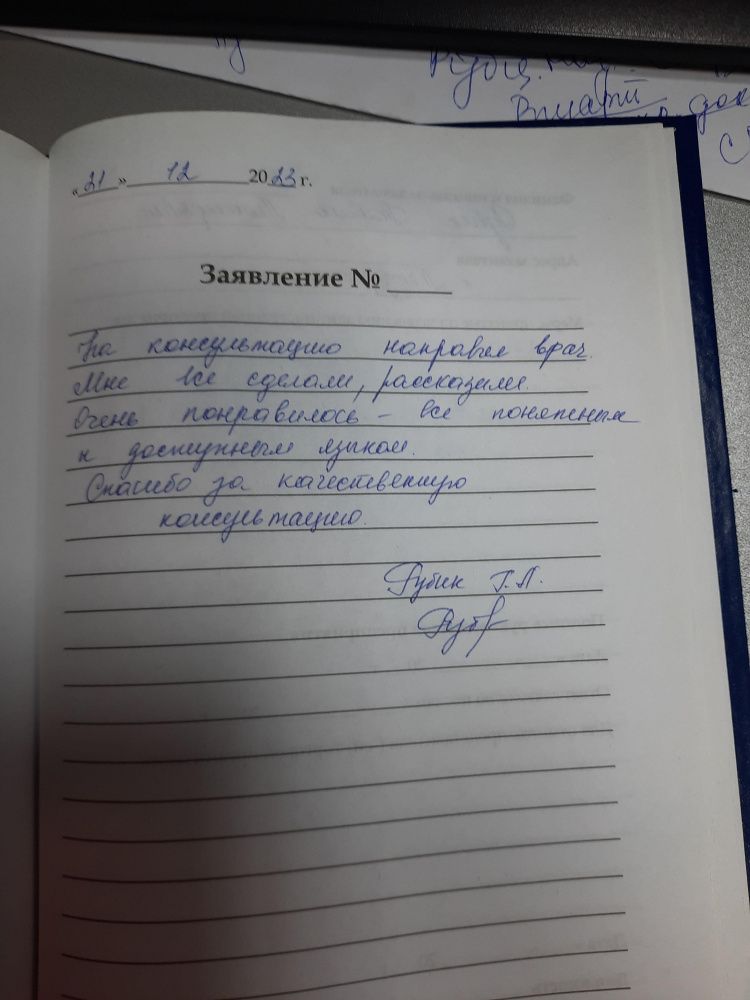 Рубц
Вписати док
с
«21» 12 2023 г.
Заявление № ____
На консультацию направил врач.
Мне все сделали, рассказали.
Очень понравилось – все понятным
и доступным языком.
Спасибо за качественную
консультацию.
Рубик Г.П.